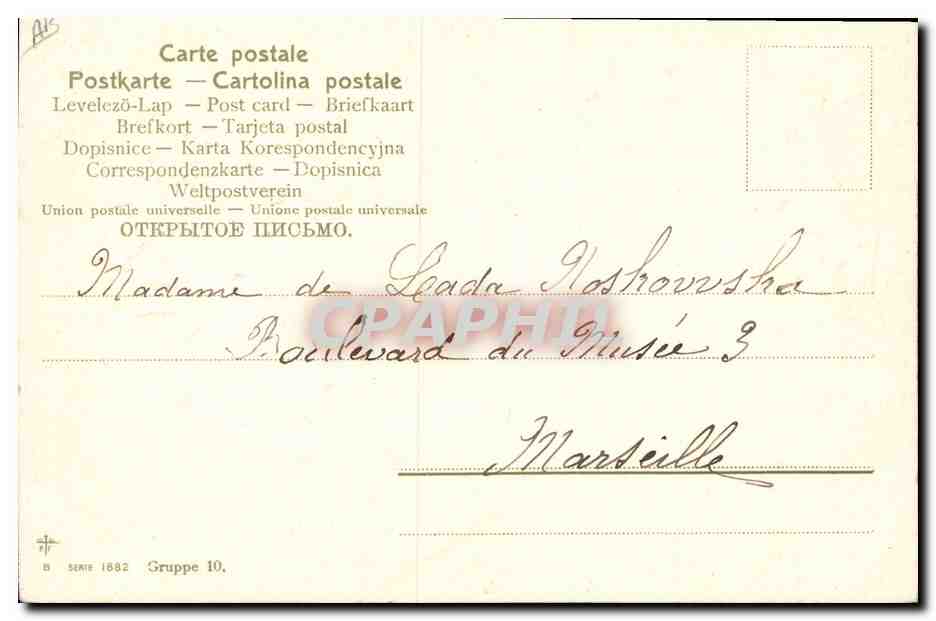 Carte postale
Postkarte — Cartolina postale
Levelező-Lap — Post card — Briefkaart
Brefkort — Tarjeta postal
Dopisnice — Karta Korespondencyjna
Correspondenzkarte — Dopisnica
Weltpostverein
Union postale universelle — Unione postale universale
ОТКРЫТОЕ ПИСЬМО.
Madame de Lada Noskowska
CPAPHIL
Boulevard du Musée 3
Marseille
B SERIE 1882 Gruppe 10.